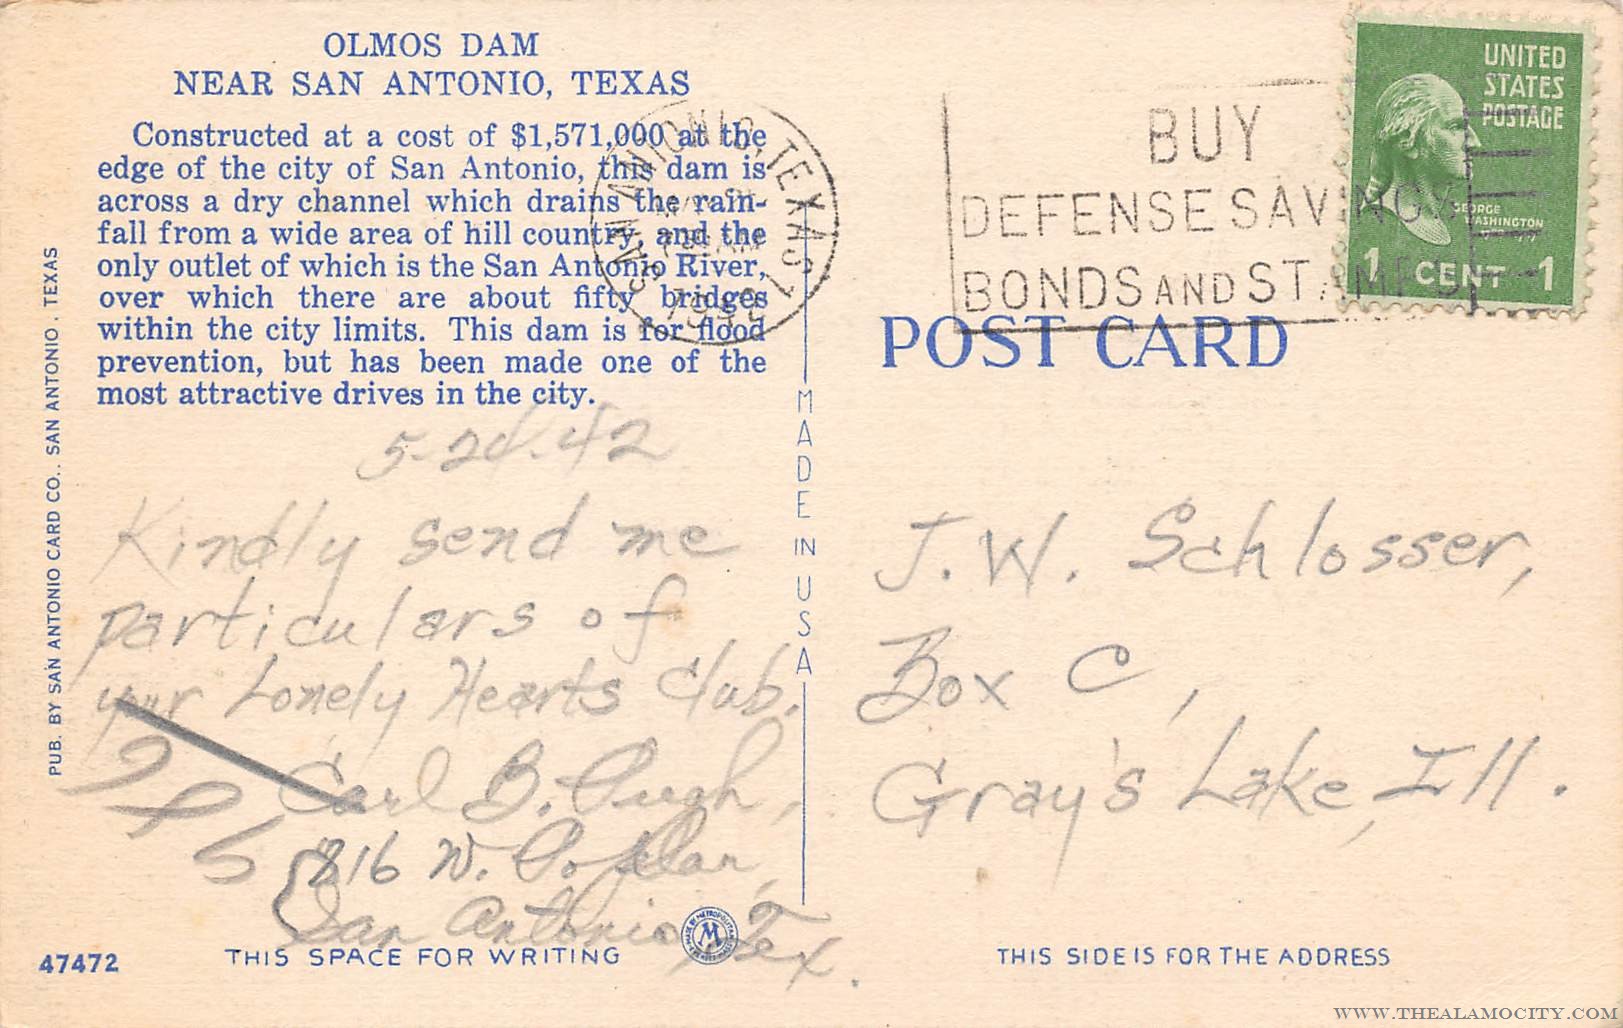 OLMOS DAM
NEAR SAN ANTONIO, TEXAS
Constructed at a cost of $1,571,000 at the
edge of the city of San Antonio, this dam is
across a dry channel which drains the rain-
fall from a wide area of hill country, and the
only outlet of which is the San Antonio River,
over which there are about fifty bridges
within the city limits. This dam is for flood
prevention, but has been made one of the
most attractive drives in the city.
5-24-42
Kindly send me
particulars of
your Lonely Hearts Club.
Carl B. Pugh,
816 W. Poplar,
San Antonio, Tex.
THIS SPACE FOR WRITING
47472
PUB. BY SAN ANTONIO CARD CO., SAN ANTONIO, TEXAS
MADE IN USA
SAN ANTONIO, TEXAS 1
1942
BUY
DEFENSE SAVINGS
BONDS AND STAMPS
UNITED
STATES
POSTAGE
GEORGE
WASHINGTON
1 CENT 1
POST CARD
J. W. Schlosser,
Box C,
Gray's Lake, Ill.
M
THIS SIDE IS FOR THE ADDRESS
WWW.THEALAMOCITY.COM